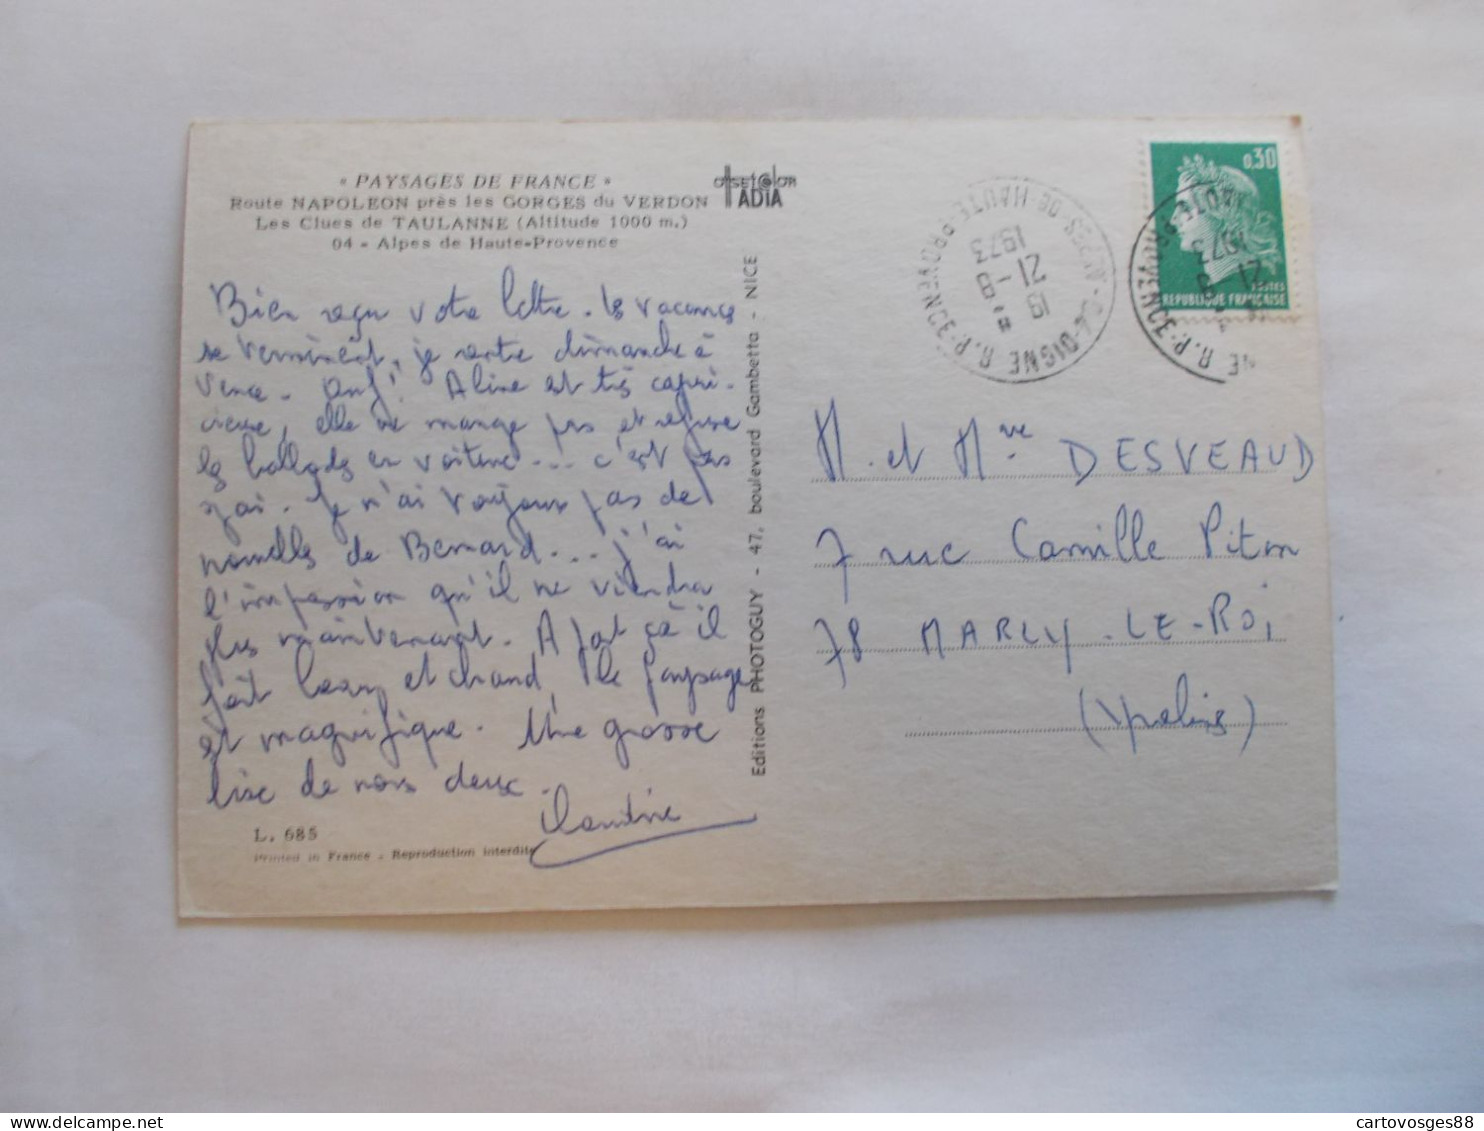 « PAYSAGES DE FRANCE »
Route NAPOLEON près les GORGES du VERDON
Les Clues de TAULANNE (Altitude 1000 m.)
04 - Alpes de Haute-Provence
Bien reçu votre lettre. les vacances
se terminent, je rentre dimanche à
Vence. Ouf! Aline est très capri-
cieuse, elle ne mange pas et refuse
les ballades en voiture... c'est pas
gai. Je n'ai toujours pas de
nouvelles de Bernard... j'ai
l'impression qu'il ne viendra
plus maintenant. A part ça il
fait beau et chaud, le paysage
est magnifique. Une grosse
bise de nous deux.
Claudine
L. 685
Printed in France - Reproduction interdite
Editions PHOTOGUY - 47, boulevard Gambetta - NICE
offset@lor
ADIA
04-DIGNE R.P. ALPES DE HAUTE PROVENCE
19 H
21 - 8
1973
0,30
POSTES
REPUBLIQUE FRANÇAISE
M. et Mme DESVEAUD
7 rue Camille Piton
78 MARLY-LE-ROI
(Yvelines)
cartovosges88